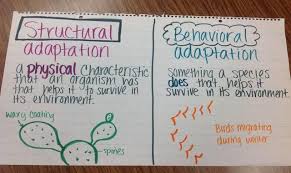 Structural
adaptation
a physical characteristic
that an organism has
that helps it to survive in
its environment.
waxy coating
spines
Behavioral
adaptation
something a species
does that helps it
survive in its environment
Birds migrating
during winter